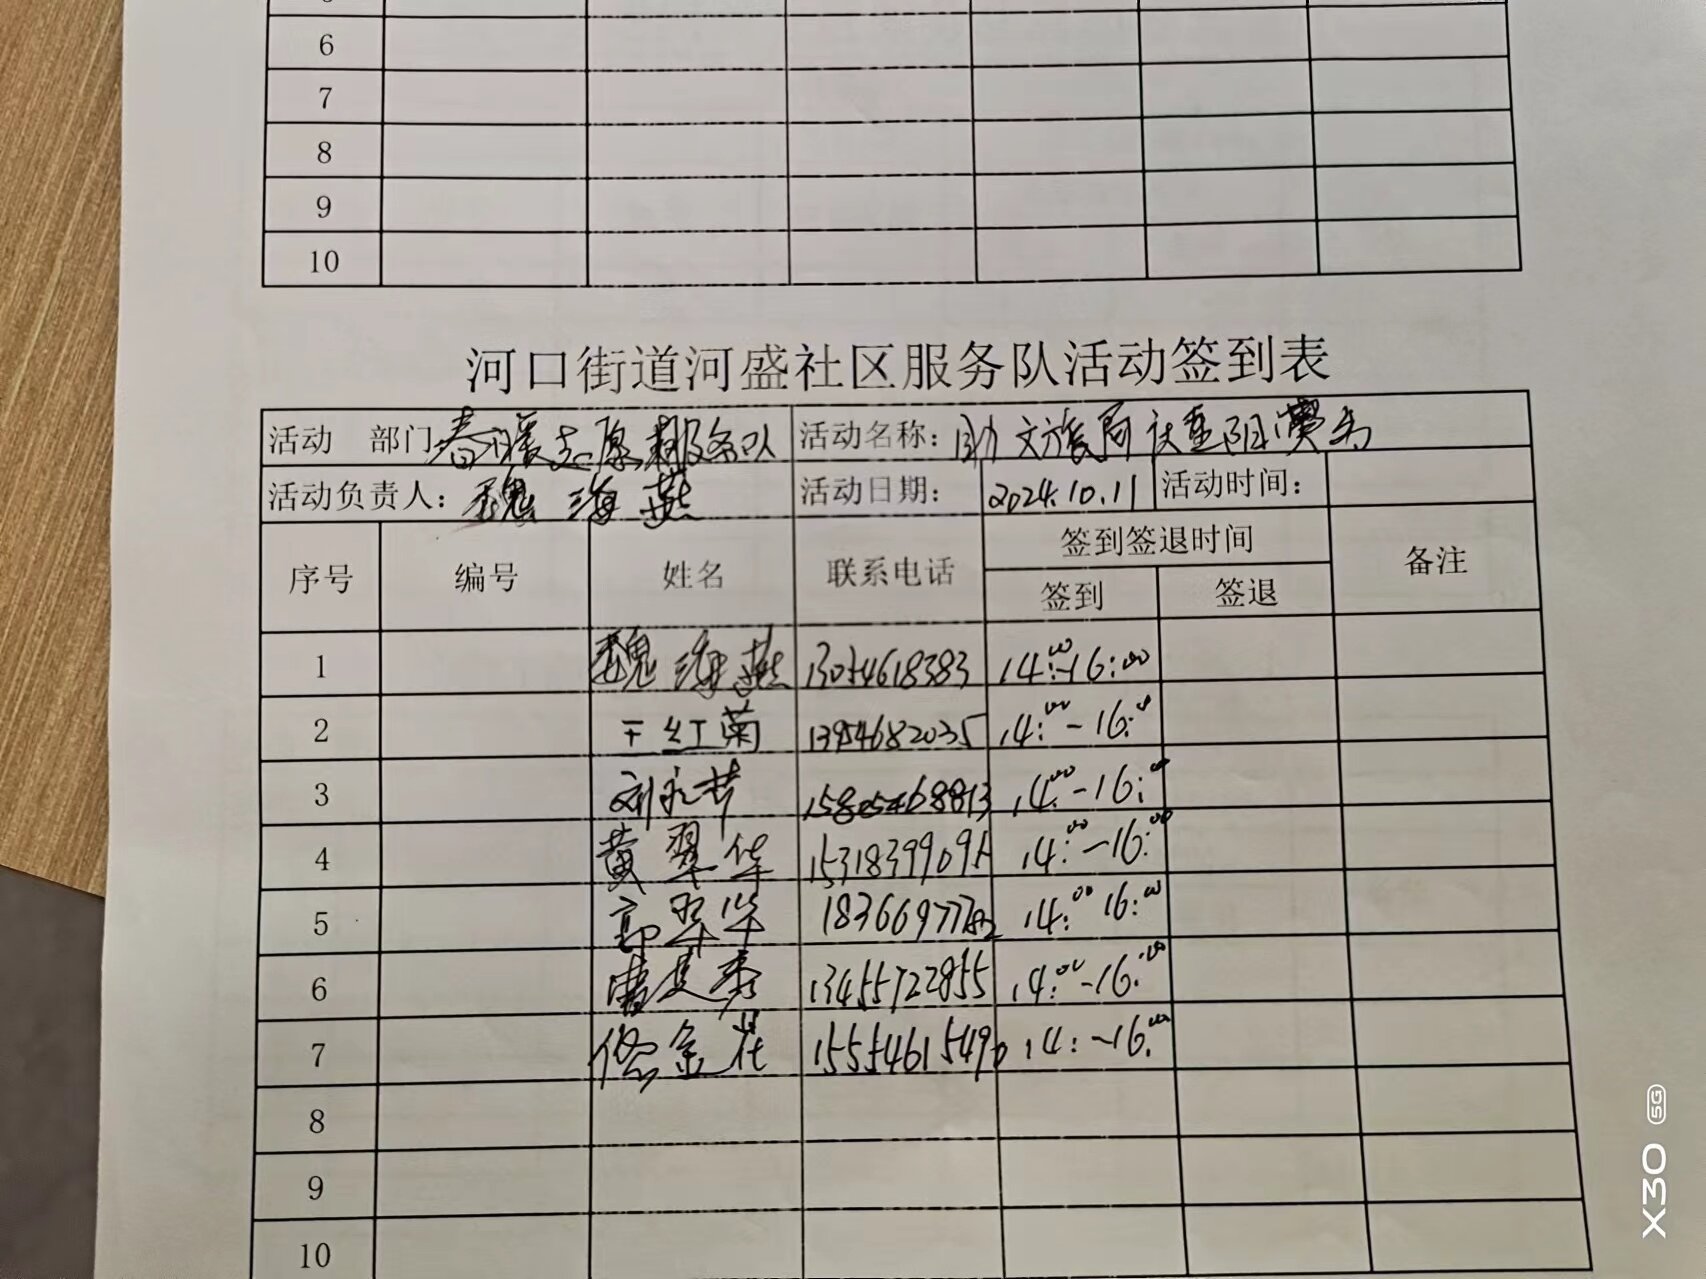 6
7
8
9
10
河口街道河盛社区服务队活动签到表
活动 部门 春暖志愿服务队 活动名称: 助文旅局 重阳
活动负责人: 魏海燕 活动日期: 2024.10.11 活动时间:
序号 编号 姓名 联系电话 签到签退时间 备注
签到 签退
1 魏海燕 13054618383 14:00-16:00
2 王红菊 13954682035 14:00-16:00
3 15805468813 14:00-16:00
4 黄翠华 15318399095 14:00-16:00
5 郭翠华 14:00 16:00
6 13455722855 14:00-16:00
7 14:-16:00
8
9
10
X30 5G